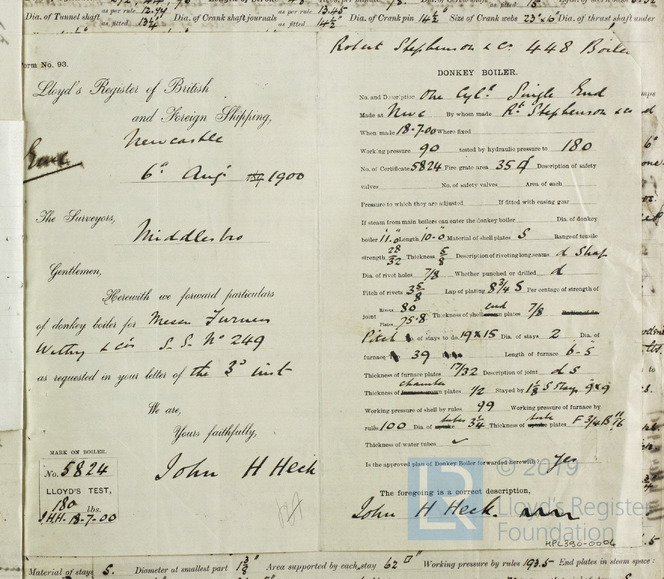 Dia. of Tunnel shaft as per rule 12.94 as fitted 13¼ Dia. of Crank shaft journals as per rule 13.45 as fitted 14½ Dia. of Crank pin 14½ Size of Crank webs 23"x6" Dia. of thrust shaft under
Robert Stephenson & Co 448 Boiler
orm No. 93.
Lloyd's Register of British
and Foreign Shipping,
Newcastle
6th Aug 1900
The Surveyors,
Middlesbro
Gentlemen,
Herewith we forward particulars
of donkey boiler for Messrs Turner
Withy & Co's S.S. No 249
as requested in your letter of the 3rd inst
We are,
Yours faithfully,
John H Heck
MARK ON BOILER.
No. 5824
LLOYD'S TEST,
180 lbs.
J.H.H. 18-7-00
DONKEY BOILER.
No. and Description One Cyl' Single End
Made at Nwc By whom made Rt Stephenson & Co Ld
When made 18-7-00 Where fixed
Working pressure 90 tested by hydraulic pressure to 180
No. of Certificate 5824 Fire grate area 35 Description of safety
valves No. of safety valves Area of each
Pressure to which they are adjusted If fitted with easing gear
If steam from main boilers can enter the donkey boiler Dia. of donkey
boiler 11.0" Length 10-0 Material of shell plates S Range of tensile
strength 28/32 Thickness 5/8 Description of riveting long. seams d Strap
Dia. of rivet holes 7/8 Whether punched or drilled d
Pitch of rivets 3 5/8 Lap of plating 8¾ S Per centage of strength of
joint Rivets 80 Plates 75.8 Thickness of shell end plates 7/8
Pitch of stays to do. 19x15 Dia. of stays 2 Dia. of
furnace 39 Length of furnace 6-5
Thickness of furnace plates 17/32 Description of joint d S
Thickness of chamber plates 1/2 Stayed by 1⅛ S Stays 9x9
Working pressure of shell by rules 99 Working pressure of furnace by
rules 100 Dia. of tubes 3¼ Thickness of tube plates F ¾ B 11/16
Thickness of water tubes
Is the approved plan of Donkey Boiler forwarded herewith Yes
The foregoing is a correct description,
John H Heck.
LR
© 2019
Lloyd's Register
Foundation
HPL390-0006
Material of stays S. Diameter at smallest part 1⅜ Area supported by each stay 62 □" Working pressure by rules 193.5 End plates in steam space :